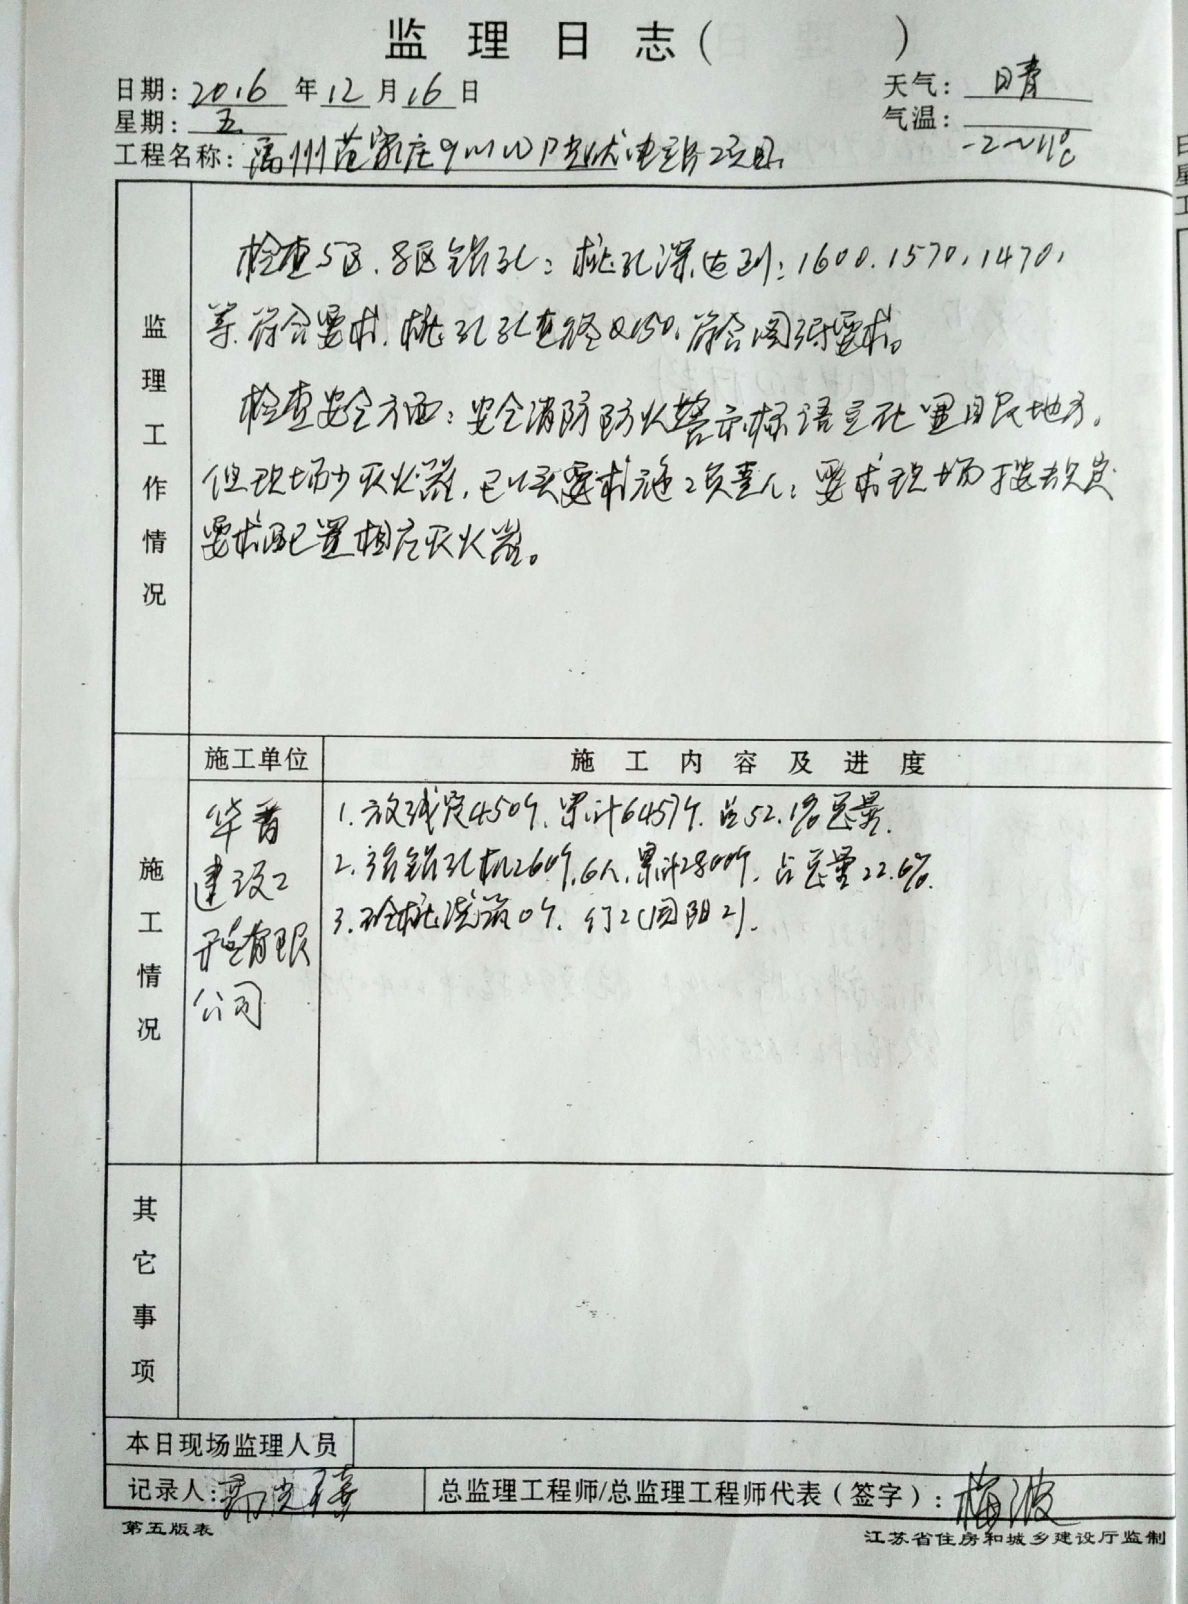 监理日志(        )
日期: 2016 年 12 月 16 日
天气: 晴
星期: 五
气温: -2~11℃
工程名称: 禹州范家庄9MWP光伏电站工项目
监理工作情况
检查5区、8区钻孔: 桩孔深达到: 1600、1570、1470、
等符合要求, 桩孔孔直径Ø150, 符合图纸要求。
检查安全方面: 安全消防防火警示标语
但现场少灭火器, 要求施工负责人: 要求现场按
要求配置相应灭火器。
施工情况
施工单位
施工内容及进度
华晋
建设工
程有限
公司
1. 放线定450个, 累计6457个, 占52.1%总量。
2. 钻孔机260个, 6人, 累计2800个, 占总量22.6%
3. 砼桩浇筑0个, 停工(因阳工)。
其它事项
本日现场监理人员
记录人:
总监理工程师/总监理工程师代表(签字): 梅波
第五版表
江苏省住房和城乡建设厅监制